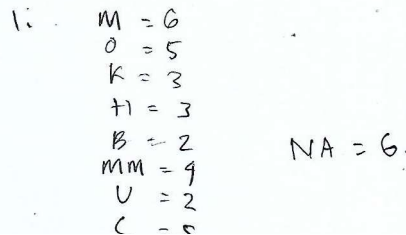 1. M = 6
O = 5
K = 3
H = 3
B = 2
MM = 9
U = 2
NA = 6.